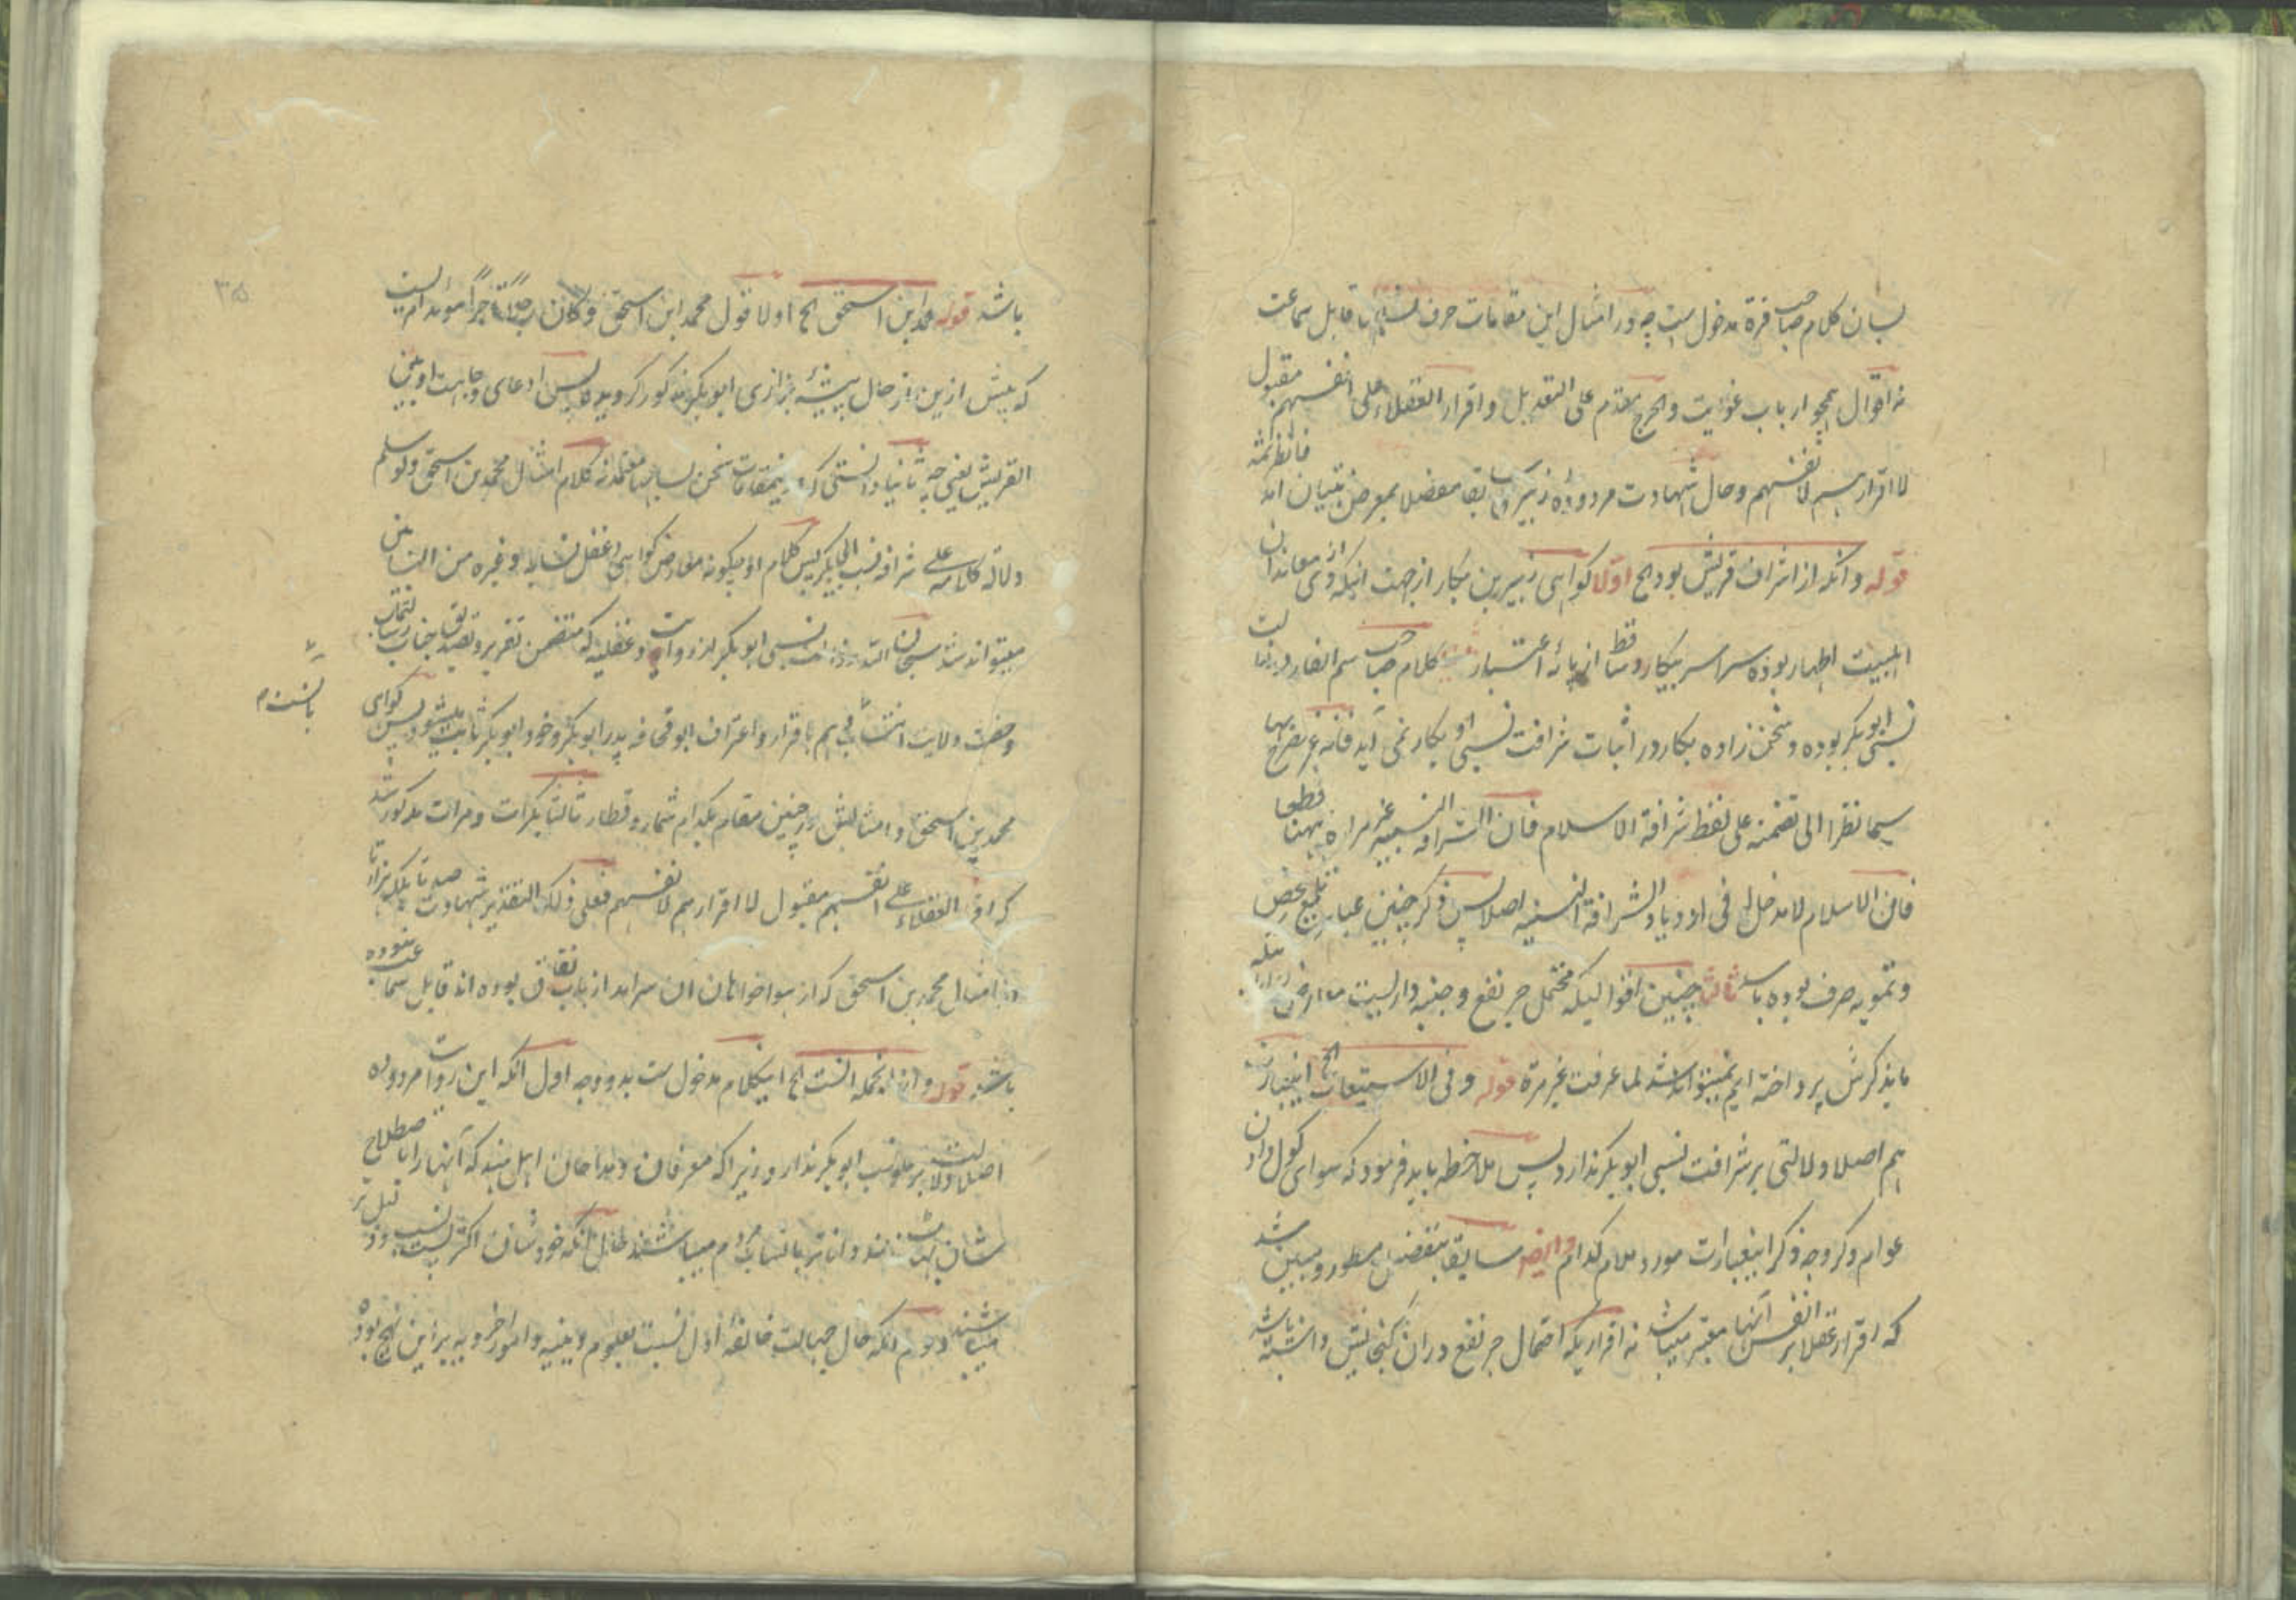 لسان کلام صاحب فرة مدخول است چه در امثال این مقامات حرف نساب قابل سماعت
نه اقوال همچو ارباب غوایت والجرح مقدم علی التعدیل واقرار العقلاء علی انفسهم مقبول
لا اقرارهم لانفسهم وحال شهادت مردوده زبیر سابقا مفصلا بمعرض تبیان امد فانظر ثمه
قوله وانکه از اشراف قریش بود الخ اولا کواهی زبیر بن بکار از جهت انیکه وی از معاندان
اهلبیت اطهار بوده سراسر بیکار وساقط از پایهٔ اعتبار کلام صاحب سم الفار در اثبات
نسبی ابوبکر بوده وسخن زاده بکار در اثبات شرافت نسبی او بکار نمی آید فانه غیر مصرح بها
سیما نظرا الی تضمنه علی لفظ شرافة الاسلام فان الشرافة النسبیه غیر مراده بهنا قطعا
فان الاسلام لا مدخل له فی ازدیاد الشرافة النسبیه اصلا پس ذکر چنین عبارت تلمیع محض
وتمویه صرف بوده باشد ثالثا چنین اقوالیکه محتمل جر نفع وجنبه داریست معارض
ما بذکرش پرداخته ایم نمیتواند شد لما عرفت غیر مرة قوله وفی الاستیعاب الخ اینعبارت
هم اصلا دلالتی بر شرافت نسبی ابوبکر ندارد پس ملاحظه باید فرمود که سوای کول دادن
عوام دکر وجه ذکر اینعبارات مورد ملام کدام وایضا سابقا بتفصیل مسطور ومبین شد
که اقرار عقلا بر انفس آنها معتبر میباشد نه اقراریکه احتمال جر نفع دران کنجایش داشته باشد
باشد قوله محمد ابن اسحق الخ اولا قول محمد ابن اسحق وکان رجلا تاجرا موید امریست
که پیش ازین از حال پیشهٔ بزازی ابوبکر مذکور کردیده پس ادعای وجاهت او بین
القریش یعنی چه ثانیا دانستی که درینمقامات سخن نسابها معتمد نه کلام امثال محمد بن اسحق ولو سلم
دلالة کلامه علی شرافة نسب ابی بکر پس کلام او چکونه معارض کواهی دغفل نسابه وغیره من النسابین
میتواند شد سبحان الله رذالت نسبی ابوبکر از روایت دغفلیه که متضمن تقریر وتصدیق جناب رسالتماب
وحضرت ولایت انتسابی هم باقرار واعتراف ابو قحافه پدر ابوبکر وخود ابوبکر ثابت میشود پس کواهی
محمد بن اسحق وامثالش در چنین مقام بکدام شمار وقطار ثالثا بکرات ومرات مذکور شد
که اقرار العقلاء علی انفسهم مقبول لا اقرارهم لانفسهم فعلی ذلک التقدیر شهادت صد تا بلکه هزار تا
امثال محمد بن اسحق که از هواخواهان ان سرامد ارباب نفاق بوده اند قابل سماعت نبوده
باشد قوله وازانجمله انست الخ اینکلام مدخول ست بدو وجه اول انکه این روایت مردوده
اصلا دلالت بر علو نسب ابوبکر ندارد زیرا که معرفان ومداحان اهل هند که آنها را باصطلاح
شان بهات نامند دانا تر بانساب مردم میباشند حال انکه خود شان اکثر پست نسب
میباشند دوم انکه حال جهالت خالفهٔ اول نسبت بعلوم دینیه وامور اخرویه برین نهج بوده
۳۵